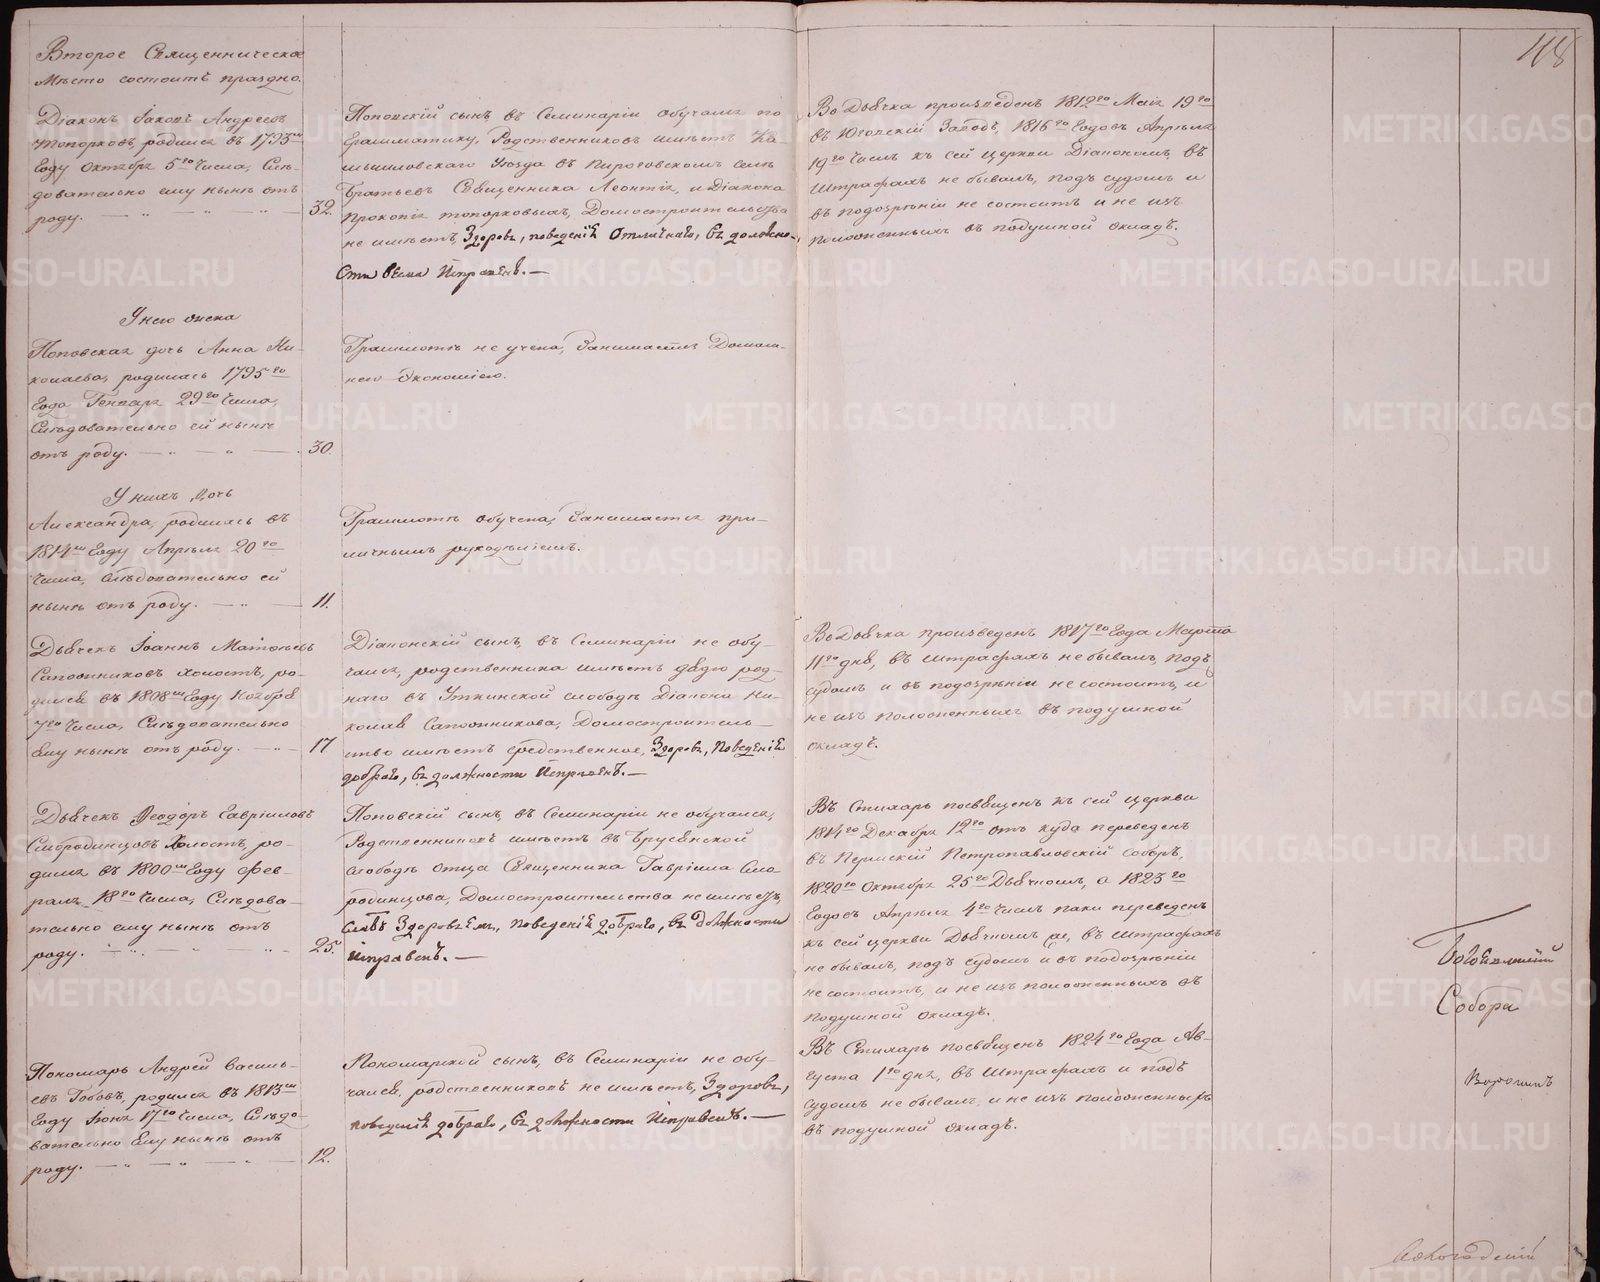 Второе Священническое
Мѣсто состоитъ праздно.
Діаконъ Іаковъ Андреевъ
Топорковъ, родился въ 1793мъ
Году Октября 5го Числа, Слѣ-
довательно ему нынѣ отъ
роду. 32.
Поповскій сынъ, въ Семинаріи обучался по
Грамматику, Родственниковъ имѣетъ Ка-
мышловскаго Уѣзда въ Пироговскомъ селѣ
Братьевъ Священника Леонтія, и Діакона
Прокопія Топорковыхъ, Домостроительства
не имѣетъ, Здоровъ, поведенія Отличнаго, въ должно-
сти весма Исправенъ.
Во Дьячка произведенъ 1812го Маія 19го
въ Юговскій Заводъ, 1816го Годовъ Апрѣля
19го Числъ къ сей церкви Діакономъ, въ
Штрафахъ не бывалъ, подъ судомъ и
въ подозрѣніи не состоитъ и не изъ
положенныхъ въ подушной окладъ.
У него жена
Поповская дочь Анна Ни-
колаева, родилась 1795го
Года Генваря 29го Числа,
Слѣдовательно ей нынѣ
отъ роду. 30.
Грамматѣ не учена, Занимается Домаш-
нею Экономіею.
У нихъ дочь
Александра, родилась въ
1814мъ Году Апрѣля 20го
Числа, слѣдовательно ей
нынѣ отъ роду. 11.
Грамматѣ обучена, Занимается при-
личнымъ рукодѣліемъ.
Дьячекъ Іоаннъ Матѳѣевъ
Сапожниковъ холостъ, ро-
дился въ 1808мъ Году Ноября
7го Числа, Слѣдовательно
Ему нынѣ отъ роду. 17
Діаконскій сынъ, въ Семинаріи не обу-
чался, родственника имѣетъ дядю род-
наго въ Уткинской слободѣ Діакона Ни-
колая Сапожникова, Домостроитель-
ство имѣетъ средственное, Здоровъ, Поведенія
добраго, въ должности Исправенъ.
Во Дьячка произведенъ 1817го Года Марта
11го дня, въ штрафахъ не бывалъ, подъ
судомъ и въ подозрѣніи не состоитъ, и
не изъ положенныхъ въ подушной
окладъ.
Дьячекъ Ѳеодоръ Гавріиловъ
Смородинцовъ Холостъ, ро-
дился въ 1800мъ Году Фев-
раля 18го Числа, Слѣдова-
тельно ему нынѣ отъ
роду. 25.
Поповскій сынъ, въ Семинаріи не обучался,
Родственниковъ имѣетъ въ Брусянской
слободѣ отца Священника Гавріила Смо
родинцова, Домостроительства не имѣетъ,
Слабъ Здоровьемъ, поведенія добраго, въ должности
Исправенъ.
Въ Стихарь посвященъ къ сей церкви
1814го Декабря 12го отъ куда переведенъ
въ Пермскій Петропавловскій Соборъ,
1820го Октября 25го Дьячкомъ, а 1823го
Годовъ Апрѣля 4го Числъ паки переведенъ
къ сей церкви Дьячкомъ же, въ штрафахъ
не бывалъ, подъ судомъ и въ подозрѣніи
не состоитъ, и не изъ положенныхъ въ
подушной окладъ.
Пономарь Андрей Василь-
евъ Бобовъ, родился въ 1813мъ
Году Іюня 17го Числа, Слѣдо-
вательно Ему нынѣ отъ
роду. 12.
Пономарской сынъ, въ Семинаріи не обу-
чался, родственниковъ не имѣетъ, Здоровъ,
поведенія добраго, въ должности Исправенъ.
Въ Стихарь посвященъ 1824го Года Ав-
густа 1го дня, въ Штрафахъ и подъ
судомъ не бывалъ, и не изъ положенныхъ
въ подушной окладъ.
Собора
METRIKI.GASO-URAL.RU